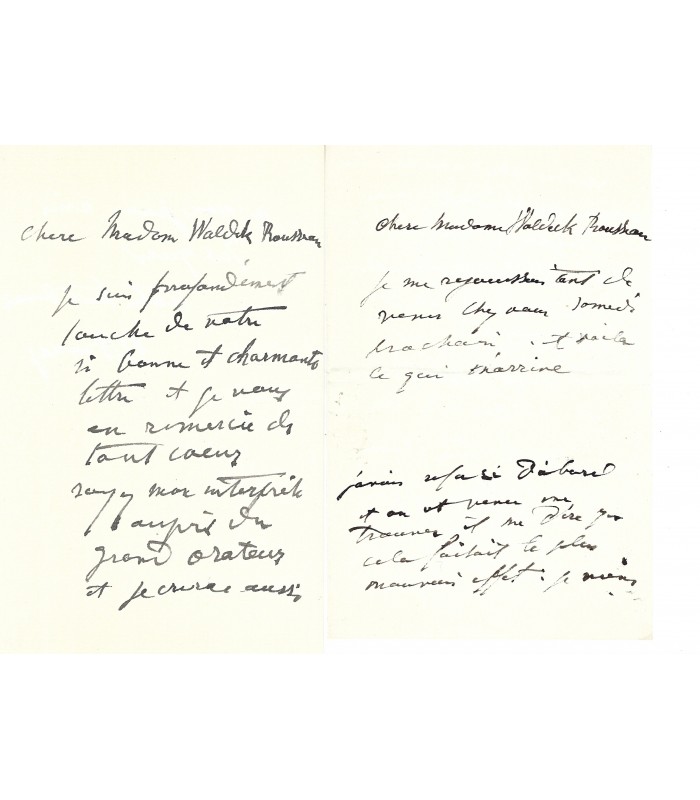 Chere Madam Waldek Rousseau
je suis profondément
touche de votre
si bonne et charmante
lettre et je vous
en remercie de
tout coeur
soyez mon interprète
auprès du
grand orateur
et je aussi
Chere Madame Waldeck Rousseau
je me rejouissais tant de
venir chez vous samedi
prochain. et voila
ce qui m'arrive
j'avais refusé d'abord
et on est venu me
trouver et me dire que
cela faisait le plus
mauvais effet. je